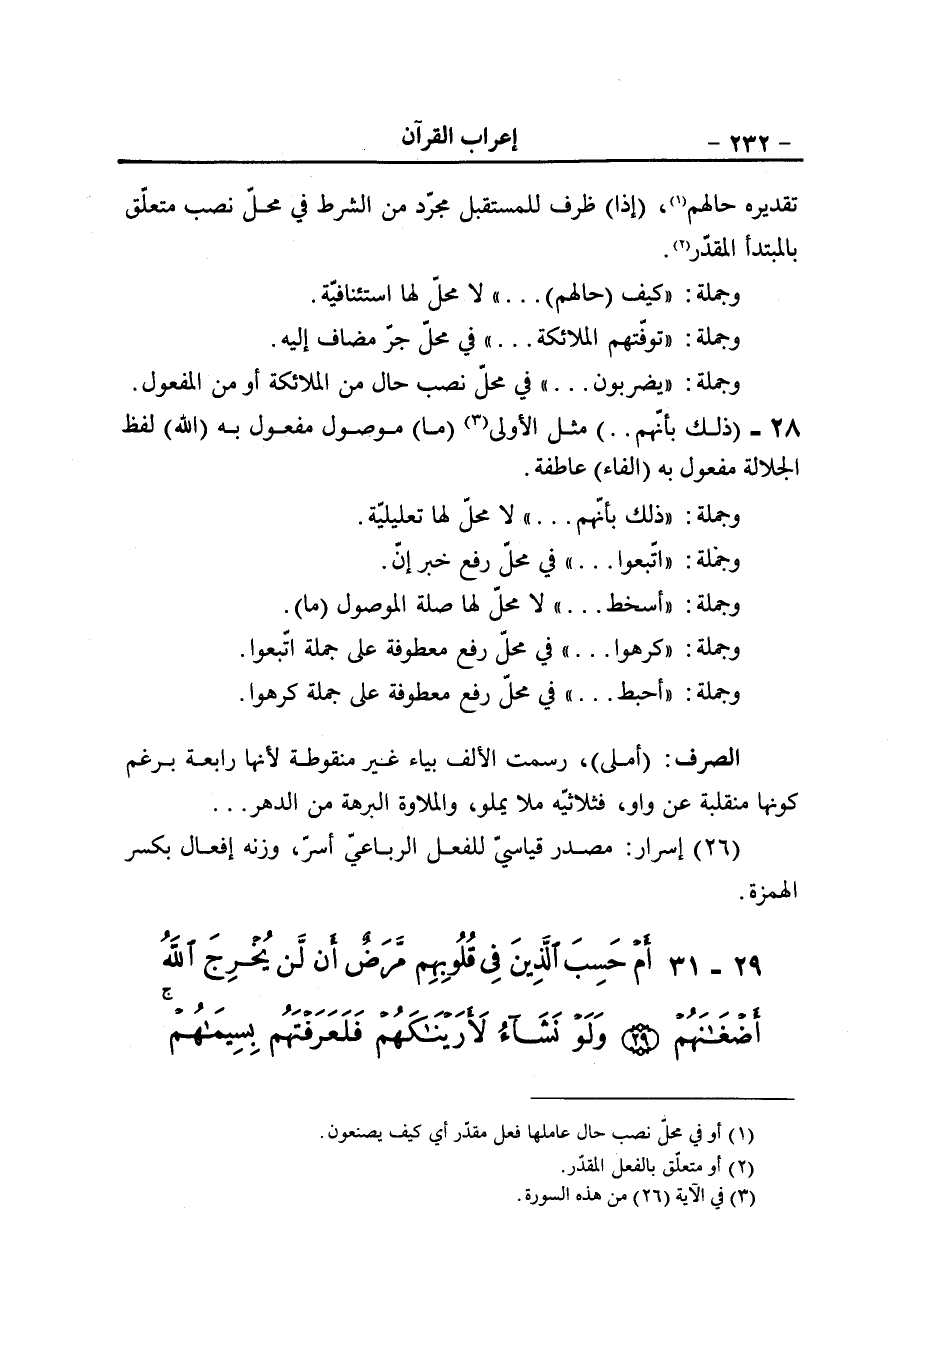 - ٢٣٢ -
إعراب القرآن
تقديره حالهم(١)، (إذا) ظرف للمستقبل مجرّد من الشرط في محلّ نصب متعلّق
بالمبتدأ المقدّر(٢).
وجملة: «كيف (حالهم)...» لا محلّ لها استئنافيّة.
وجملة: «توفّتهم الملائكة...» في محلّ جرّ مضاف إليه.
وجملة: «يضربون...» في محلّ نصب حال من الملائكة أو من المفعول.
٢٨ ـ (ذلك بأنّهم..) مثل الأولى(٣) (ما) موصول مفعول به (الله) لفظ
الجلالة مفعول به (الفاء) عاطفة.
وجملة: «ذلك بأنّهم...» لا محلّ لها تعليليّة.
وجملة: «اتّبعوا...» في محلّ رفع خبر إنّ.
وجملة: «أسخط...» لا محلّ لها صلة الموصول (ما).
وجملة: «كرهوا...» في محلّ رفع معطوفة على جملة اتّبعوا.
وجملة: «أحبط...» في محلّ رفع معطوفة على جملة كرهوا.
الصرف: (أملى)، رسمت الألف بياء غير منقوطة لأنها رابعة برغم
كونها منقلبة عن واو، فثلاثيّه ملا يملو، والملاوة البرهة من الدهر...
(٢٦) إسرار: مصدر قياسيّ للفعل الرباعيّ أسرّ، وزنه إفعال بكسر
الهمزة.
٢٩ ـ ٣١ أَمْ حَسِبَ ٱلَّذِينَ فِى قُلُوبِهِم مَّرَضٌ أَن لَّن يُخْرِجَ ٱللَّهُ
أَضْغَـٰنَهُمْ ﴿٢٩﴾ وَلَوْ نَشَآءُ لَأَرَيْنَـٰكَهُمْ فَلَعَرَفْتَهُم بِسِيمَـٰهُمْ ۚ
(١) أو في محلّ نصب حال عاملها فعل مقدّر أي كيف يصنعون.
(٢) أو متعلّق بالفعل المقدّر.
(٣) في الآية (٢٦) من هذه السورة.